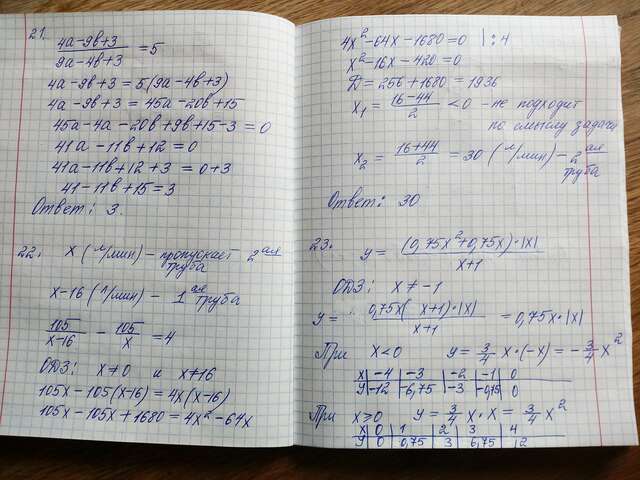 21.
(4a-9в+3)/(9a-4в+3) = 5
4a-9в+3 = 5(9a-4в+3)
4a-9в+3 = 45a-20в+15
45a-4a-20в+9в+15-3=0
41a-11в+12=0
41a-11в+12+3=0+3
41-11в+15=3
Ответ: 3.
22. x (л/мин) - пропускает 2ая труба
x-16 (л/мин) - 1ая труба
105/(x-16) - 105/x = 4
ОДЗ: x≠0 и x≠16
105x-105(x-16)=4x(x-16)
105x-105x+1680=4x²-64x
4x²-64x-1680=0 | :4
x²-16x-420=0
D=256+1680=1936
x₁ = (16-44)/2 <0 - не подходит
по смыслу задачи
x₂ = (16+44)/2 = 30 (л/мин) - 2ая
труба
Ответ: 30
23. y = ((0,75x²+0,75x)·|x|)/(x+1)
ОДЗ: x ≠ -1
y = (0,75x(x+1)·|x|)/(x+1) = 0,75x·|x|
При x<0 y = 3/4 x·(-x) = -3/4 x²
x | -4 | -3 | -2 | -1 | 0
y | -12 | -6,75 | -3 | -0,75 | 0
При x≥0 y = 3/4 x·x = 3/4 x²
x | 0 | 1 | 2 | 3 | 4
y | 0 | 0,75 | 3 | 6,75 | 12